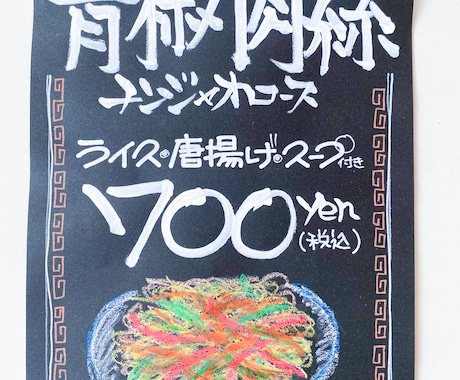 青椒肉絲
チンジャオロース
ライス・唐揚げ・スープ付き
700yen
(税込)